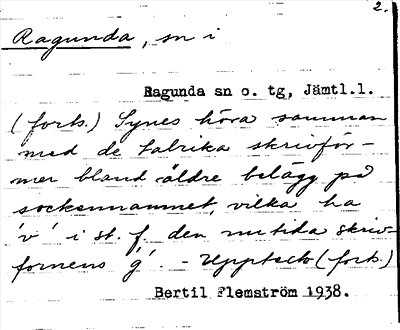 2.
Ragunda, sn i
Ragunda sn o. tg, Jämtl.l.
(forts.) Synes höra samman
med de talrika skrivfor-
mer bland äldre belägg på
sockennamnet, vilka ha
'v' i st. f. den nutida skriv-
formens 'g'. - Uppteckn (forts.)
Bertil Flemström 1938.